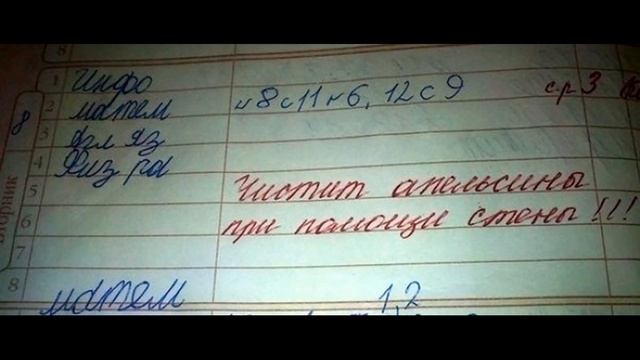 8
1 Инфо
2 матем №8 с11 №6, 12 с 9 ср 3
3 Яз
4 Физ ра
5 Чистит апельсины
6 при помощи стены!!!
7
8
8
вторник
матем 1,2